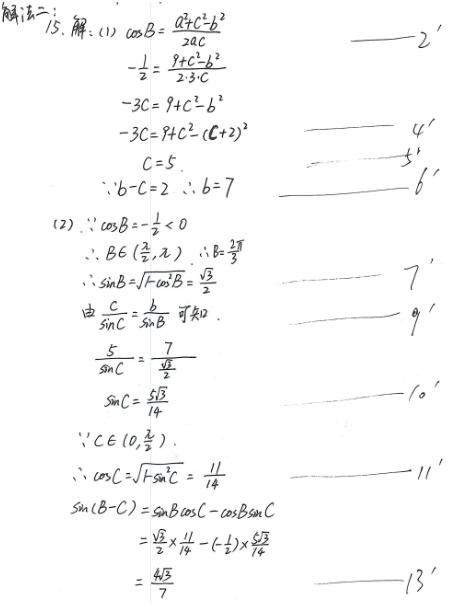 解法二:
15. 解: (1) cosB = \frac{a²+c²-b²}{2ac} —— 2'
-\frac{1}{2} = \frac{9+c²-b²}{2·3·c}
-3c = 9+c²-b²
-3c = 9+c²-(c+2)² —— 4'
c = 5. —— 5'
∵ b-c=2 ∴ b=7 —— 6'
(2). ∵ cosB = -\frac{1}{2} < 0
∴ B∈(\frac{π}{2}, π) ∴ B=\frac{2π}{3}
∴ sinB = \sqrt{1-cos²B} = \frac{\sqrt{3}}{2} —— 7'
由 \frac{c}{sinC} = \frac{b}{sinB} 可知. —— 9'
\frac{5}{sinC} = \frac{7}{\frac{\sqrt{3}}{2}}
sinC = \frac{5\sqrt{3}}{14} —— 10'
∵ C∈(0, \frac{π}{2}).
∴ cosC = \sqrt{1-sin²C} = \frac{11}{14} —— 11'
sin(B-C) = sinBcosC - cosBsinC
= \frac{\sqrt{3}}{2} × \frac{11}{14} - (-\frac{1}{2}) × \frac{5\sqrt{3}}{14}
= \frac{4\sqrt{3}}{7} —— 13'